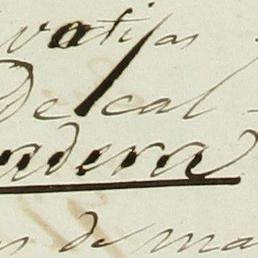 vatijas
De cal
adera
s de ma